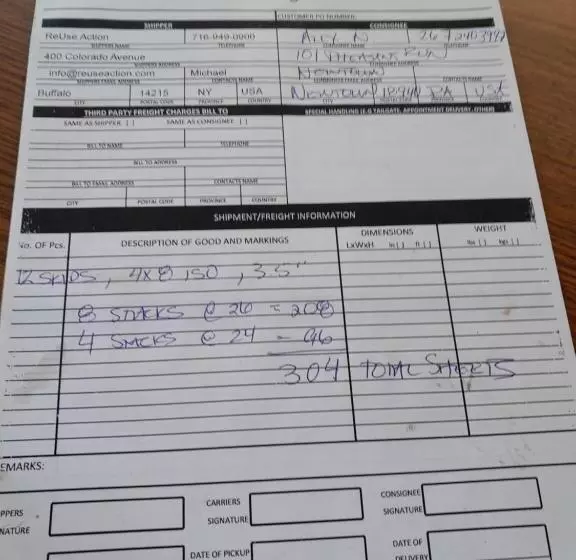 CUSTOMER PO NUMBER:
SHIPPER CONSIGNEE
ReUse Action 716-949-0900 Alex N
SHIPPERS NAME TELEPHONE COMPANY NAME TELEPHONE
400 Colorado Avenue 101 Pheasant Run
SHIPPERS ADDRESS
info@reuseaction.com Michael Newtown
SHIPPERS EMAIL ADDRESS CONTACTS NAME CONTACTS NAME
Buffalo 14215 NY USA Newtown 18940 PA USA
CITY POSTAL CODE PROVINCE COUNTRY CITY
THIRD PARTY FREIGHT CHARGES BILL TO SPECIAL HANDLING (E.G TAILGATE, APPOINTMENT DELIVERY, OTHER)
SAME AS SHIPPER [ ] SAME AS CONSIGNEE [ ]
BILL TO NAME TELEPHONE
BILL TO ADDRESS
BILL TO EMAIL ADDRESS CONTACTS NAME
CITY POSTAL CODE PROVINCE COUNTRY
SHIPMENT/FREIGHT INFORMATION
No. OF Pcs. DESCRIPTION OF GOOD AND MARKINGS DIMENSIONS WEIGHT
LxWxH in [ ] ft [ ] lbs [ ] kgs [ ]
12 SKIDS, 4x8 ISO, 3.5"
8 STACKS @ 26 = 208
4 STACKS @ 24 = 96
304 TOTAL SHEETS
EMARKS:
PPERS CARRIERS CONSIGNEE
NATURE SIGNATURE SIGNATURE
DATE OF PICKUP DATE OF
DELIVERY